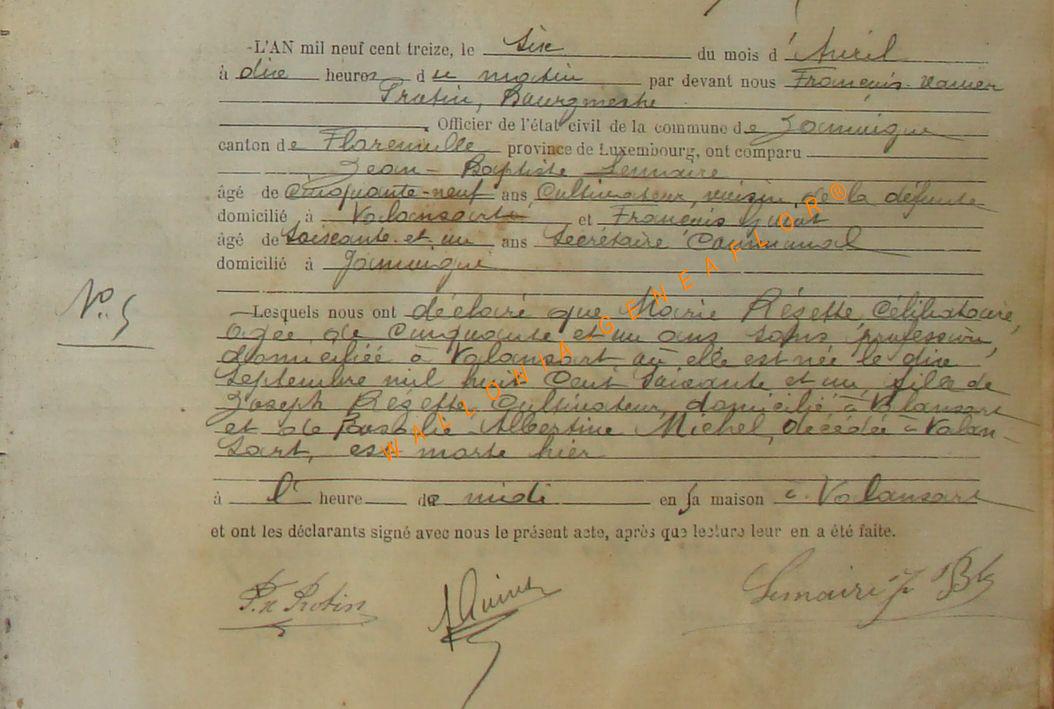 -L'AN mil neuf cent treize, le six du mois d'Avril
à dix heures du matin par devant nous François Xavier
Bourgmestre
Officier de l'état civil de la commune de Jamoigne
canton de Florenville province de Luxembourg, ont comparu
Jean-Baptiste Lemaire
âgé de cinquante-neuf ans Cultivateur, voisin de la défunte
domicilié à Valansart et François
âgé de Soixante et un ans Secrétaire Communal
domicilié à Jamoigne
N° 5
—Lesquels nous ont déclaré que Marie Rézette, Célibataire,
agée de cinquante et un ans sans profession,
domiciliée à Valansart où elle est née le dix
Septembre mil huit Cent Soixante et un, fille de
Joseph Rézette Cultivateur, domicilié à Valansart
et de Rosalie Albertine Michel, décédée à Valan-
sart, est morte hier
à l' heure de midi en sa maison à Valansart
et ont les déclarants signé avec nous le présent acte, après que lecture leur en a été faite.
Lemaire J Bte
WALLONIA GENEAFLOR®